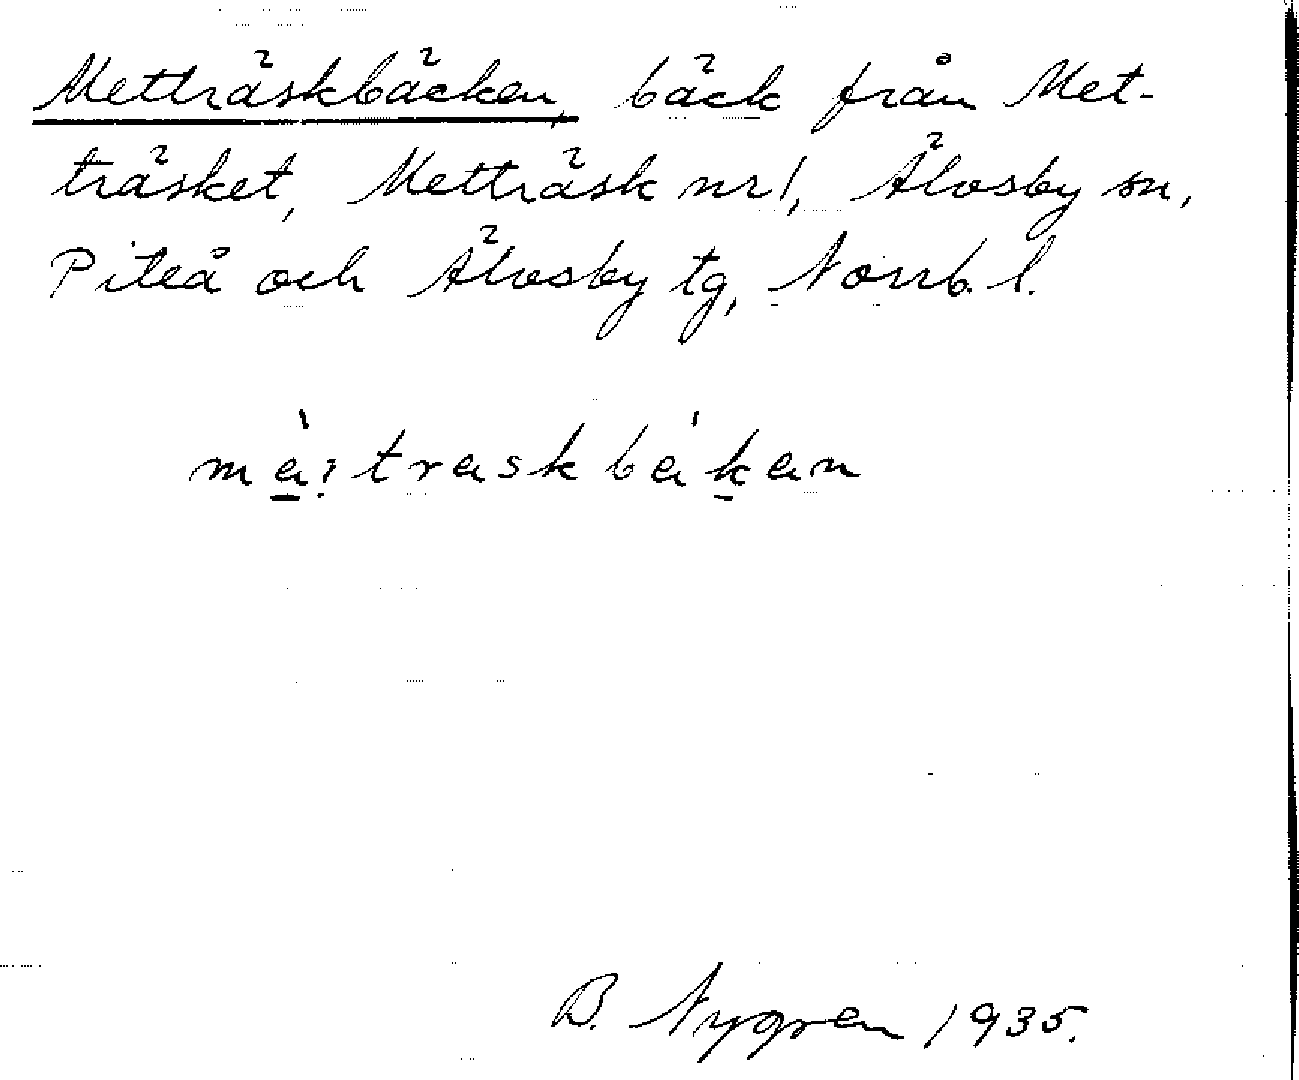 Metträskbäcken, bäck från Met-
träsket, Metträsk nr 1, Älvsby sn,
Piteå och Älvsby tg, Norrb. l.
mä̀i̯traskbákan
B. Nygren 1935.